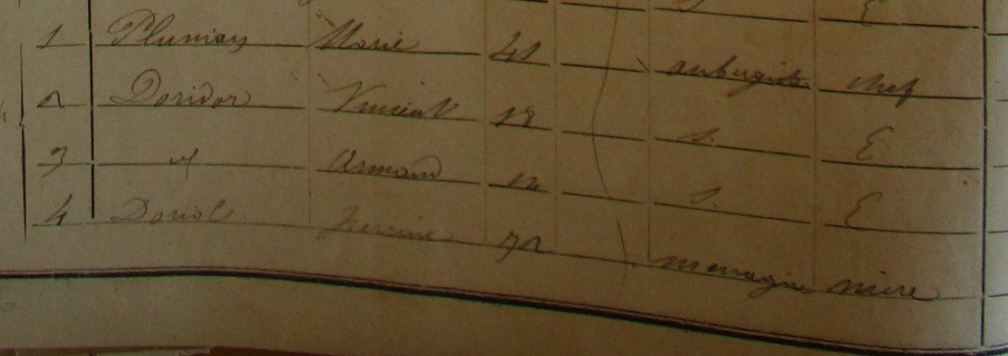 S. E
1 Plunian Marie 41 aubergiste chef
2 Doridor Vincent 18 S. E
3 id Armand 12 S. E
4 Doriol Perrine 72 menagère mère